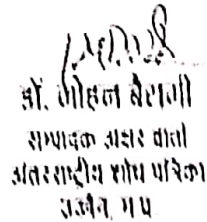 डॉ. मोहन बैरागी
सम्पादक अक्षर वार्ता
अंतरराष्ट्रीय शोध पत्रिका
उज्जैन, म.प्र.